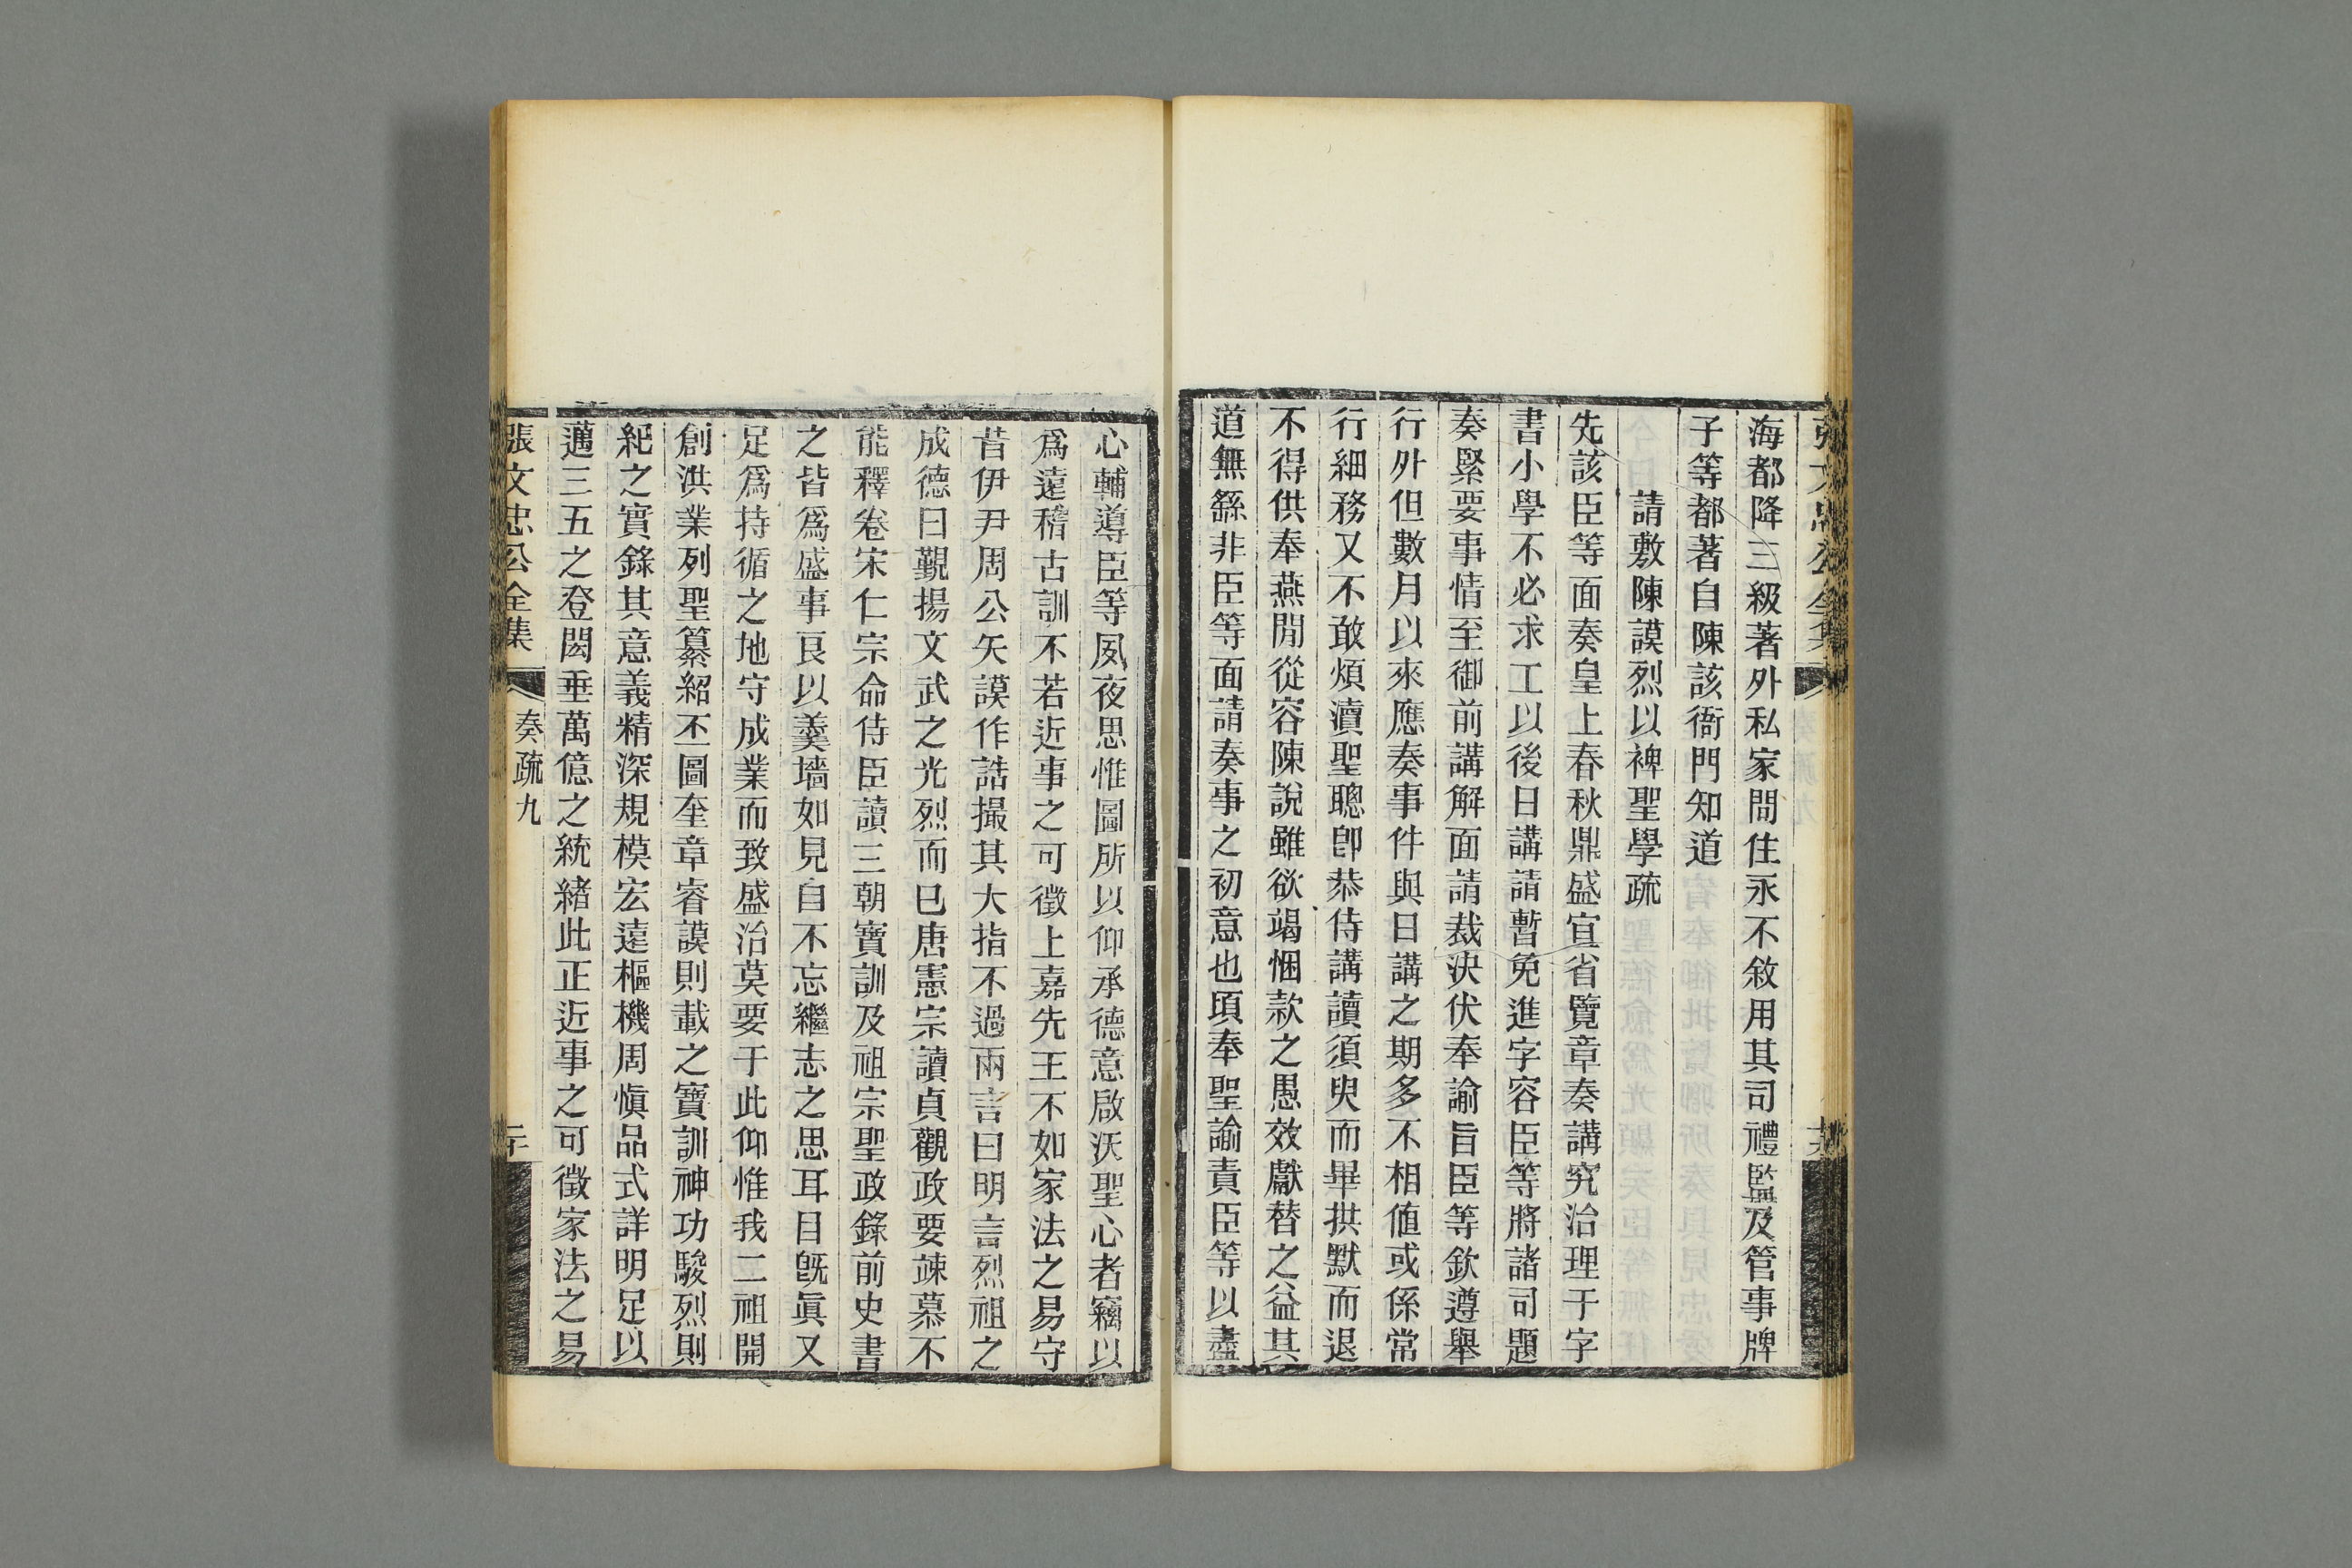 海都降三級著外私家閒住永不敘用其司禮監及管事牌
子等都著自陳該衙門知道
請敷陳謨烈以裨聖學疏
先該臣等面奏皇上春秋鼎盛宜省覽章奏講究治理于字
書小學不必求工以後日講請暫免進字容臣等將諸司題
奏緊要事情至御前講解面請裁決伏奉諭旨臣等欽遵舉
行外但數月以來應奏事件與日講之期多不相値或係常
行細務又不敢煩瀆聖聰卽恭侍講讀須臾而畢拱默而退
不得供奉燕閒從容陳說雖欲竭悃款之愚效獻替之益其
道無繇非臣等面請奏事之初意也頃奉聖諭責臣等以盡
心輔導臣等夙夜思惟圖所以仰承德意啟沃聖心者竊以
爲遠稽古訓不若近事之可徵上嘉先王不如家法之易守
昔伊尹周公矢謨作誥撮其大指不過兩言曰明言烈祖之
成德曰覲揚文武之光烈而巳唐憲宗讀貞觀政要竦慕不
能釋卷宋仁宗命侍臣讀三朝寶訓及祖宗聖政錄前史書
之皆爲盛事良以羹墻如見自不忘繼志之思耳目旣眞又
足爲持循之地守成業而致盛治莫要于此仰惟我二祖開
創洪業列聖纂紹丕圖奎章睿謨則載之寶訓神功駿烈則
紀之實錄其意義精深規模宏遠樞機周愼品式詳明足以
邁三五之登閎垂萬億之統緒此正近事之可徵家法之易
張文忠公全集
奏疏九